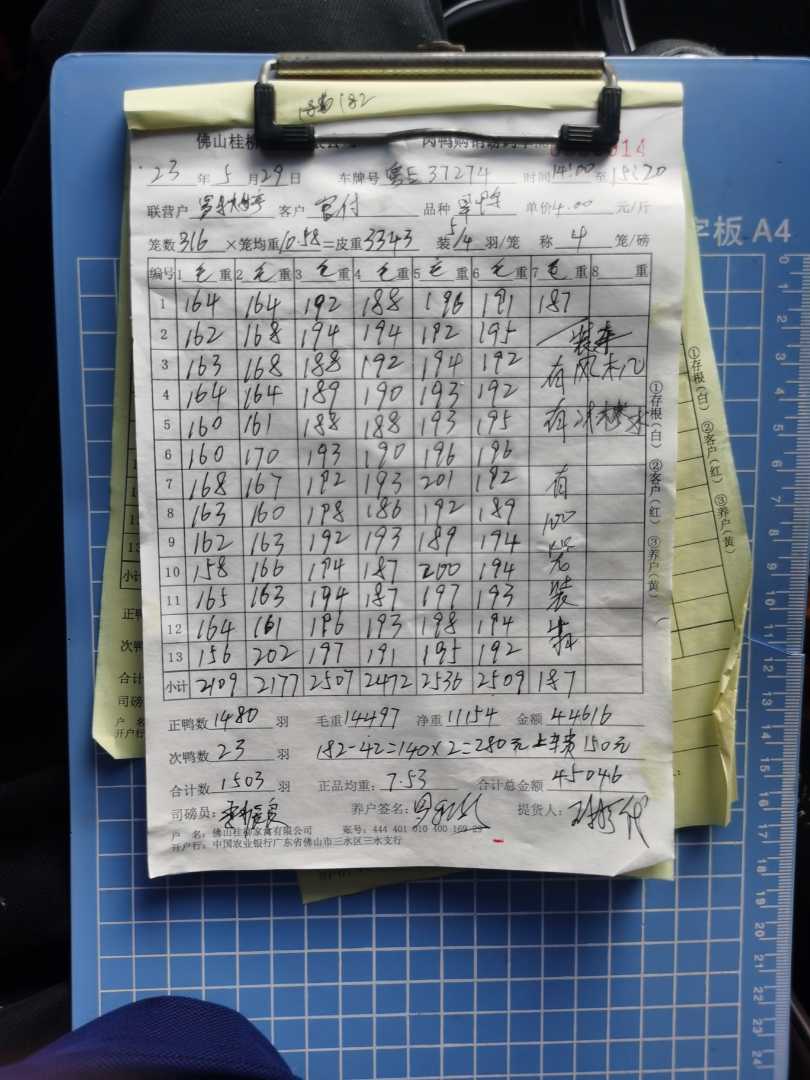 182
佛山桂柳
14
23 年 5 月 29 日 车牌号 37274 时间 14:00 至 15:20
联营户 客户 品种 单价 4.00 元/斤
笼数 316 ×笼均重 10.58 =皮重 3343 装 5/4 羽/笼 称 4 笼/磅
编号 1 毛 重 2 毛 重 3 毛 重 4 毛 重 5 毛 重 6 毛 重 7 毛 重 8 重
1 164 164 192 188 196 191 187
2 162 168 194 194 192 195 装车
3 163 168 188 192 194 192 有风
4 164 164 189 190 193 192
5 160 161 188 188 193 195 有冰 水
6 160 170 193 190 196 196
7 168 167 192 193 201 192 有
8 163 160 198 186 192 189 100
9 162 163 192 193 189 194
10 158 166 194 187 200 194
11 165 163 194 187 197 193 装
12 164 161 196 193 198 194
13 156 202 197 191 195 192
小计 2109 2177 2507 2472 2536 2509 187
正鸭数 1480 羽 毛重 14497 净重 11154 金额 44616
次鸭数 23 羽 182-42=140×2=280元 上车费150元
合计数 1503 羽 正品均重: 7.53 合计总金额 45046
司磅员: 养户签名: 提货人:
户 名: 佛山桂柳家禽有限公司 账号: 444 401 010 400 169 29
开户行: 中国农业银行广东省佛山市三水区三水支行
①存根(白) ②客户(红) ③养户(黄)
①存根(白) ②客户(红) ③养户(黄)
小计
正鸭
次鸭
合计
司磅
户 名
开户行
字板 A4
0
1
2
3
4
5
6
7
8
9
10
11
12
13
14
15
16
17
18
19
20
21
22
23
24